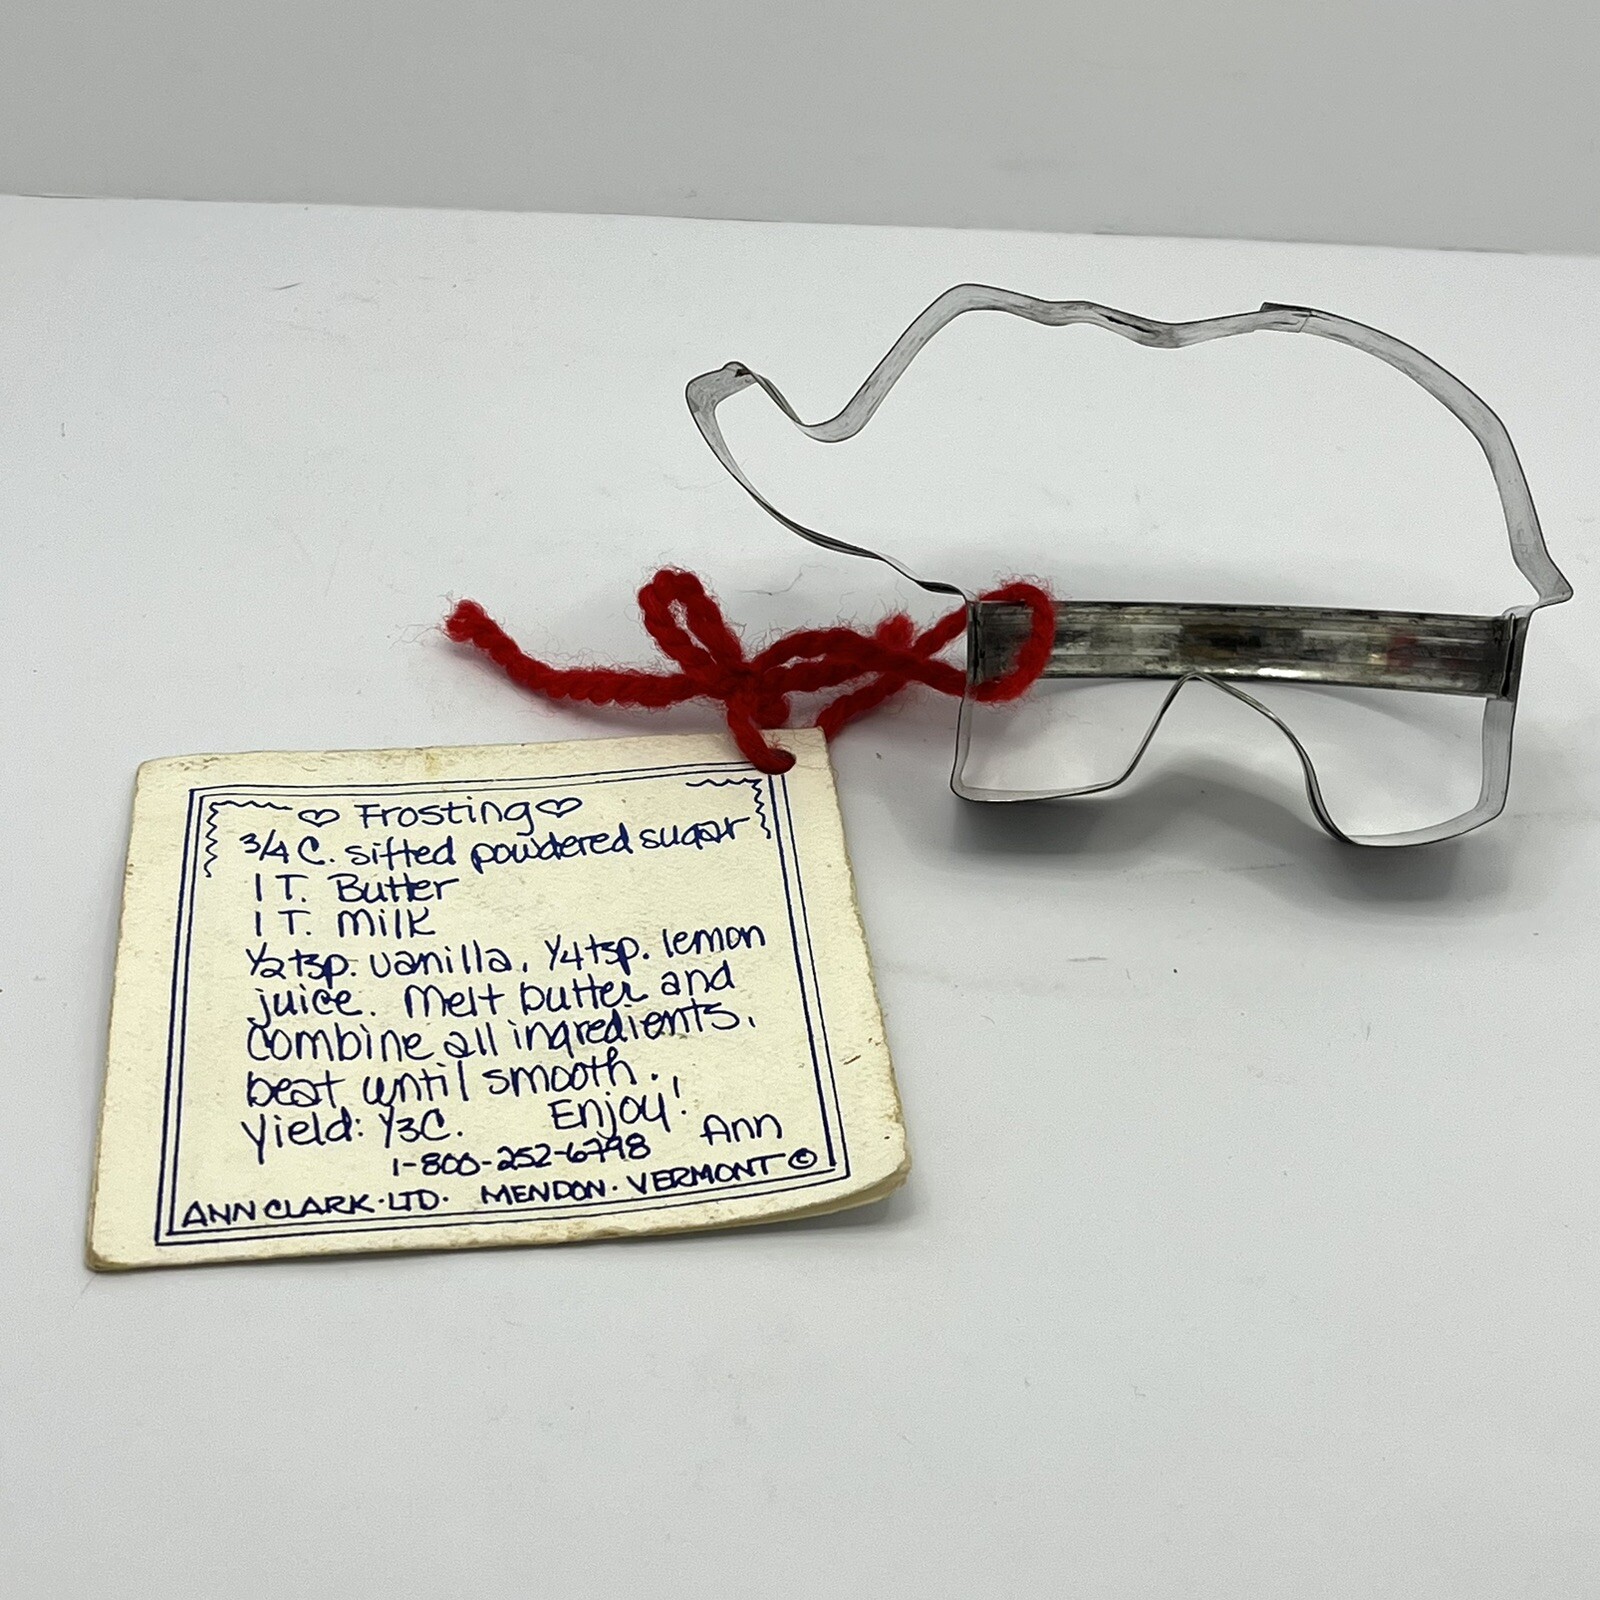 ♡ Frosting ♡
3/4 C. sifted powdered sugar
1 T. Butter
1 T. Milk
1/2 tsp. vanilla, 1/4 tsp. lemon
juice. Melt butter and
combine all ingredients,
beat until smooth.
Yield: 1/3 C. Enjoy!
Ann
1-800-252-6798
ANN CLARK · LTD. MENDON · VERMONT ©